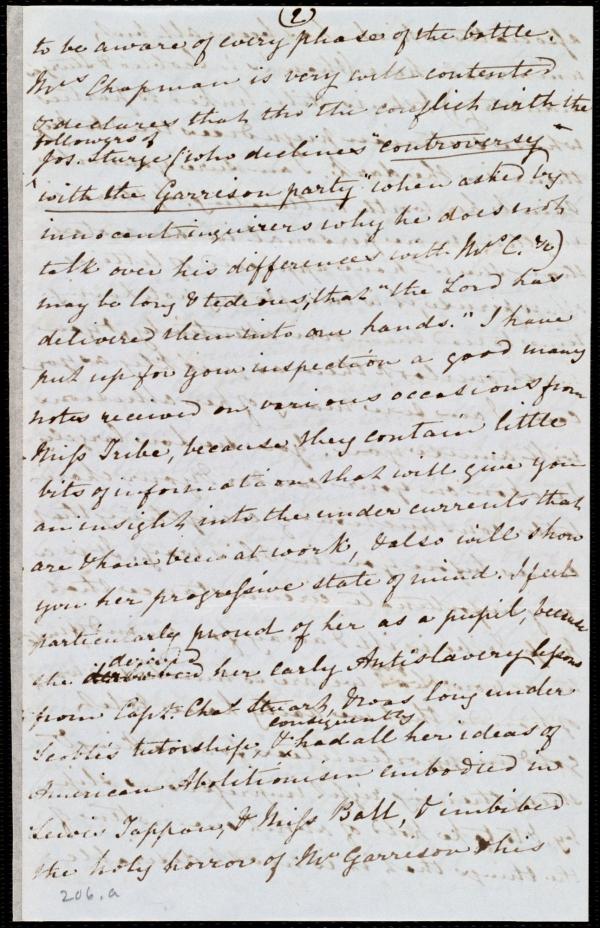 (2)
to be aware of every phase of the battle.
Mrs Chapman is very well contented
& declares that tho' "the conflict with the
followers of
Jos. Sturge (who declines "controversy
"with the Garrison party" when asked by
innocent inquirers why he does not
talk over his differences with Mrs C. &c)
may be long & tedious, that "the Lord has
delivered them into our hands." I have
put up for your inspection a good many
notes received on various occasions from
Miss Tribe, because they contain little
bits of information that will give you
an insight into the under currents that
are & have been at work, & also will show
you her progressive state of mind. I feel
particularly proud of her as a pupil, because
derived
she her early Antislavery lessons
from Capt. Chas. Stuart, & was long under
consequently
Scoble's tutorship, & had all her ideas of
American Abolitionism embodied in
Lewis Tappan, & Miss Ball, & imbibed
the holy horror of Mr Garrison & his
206.a